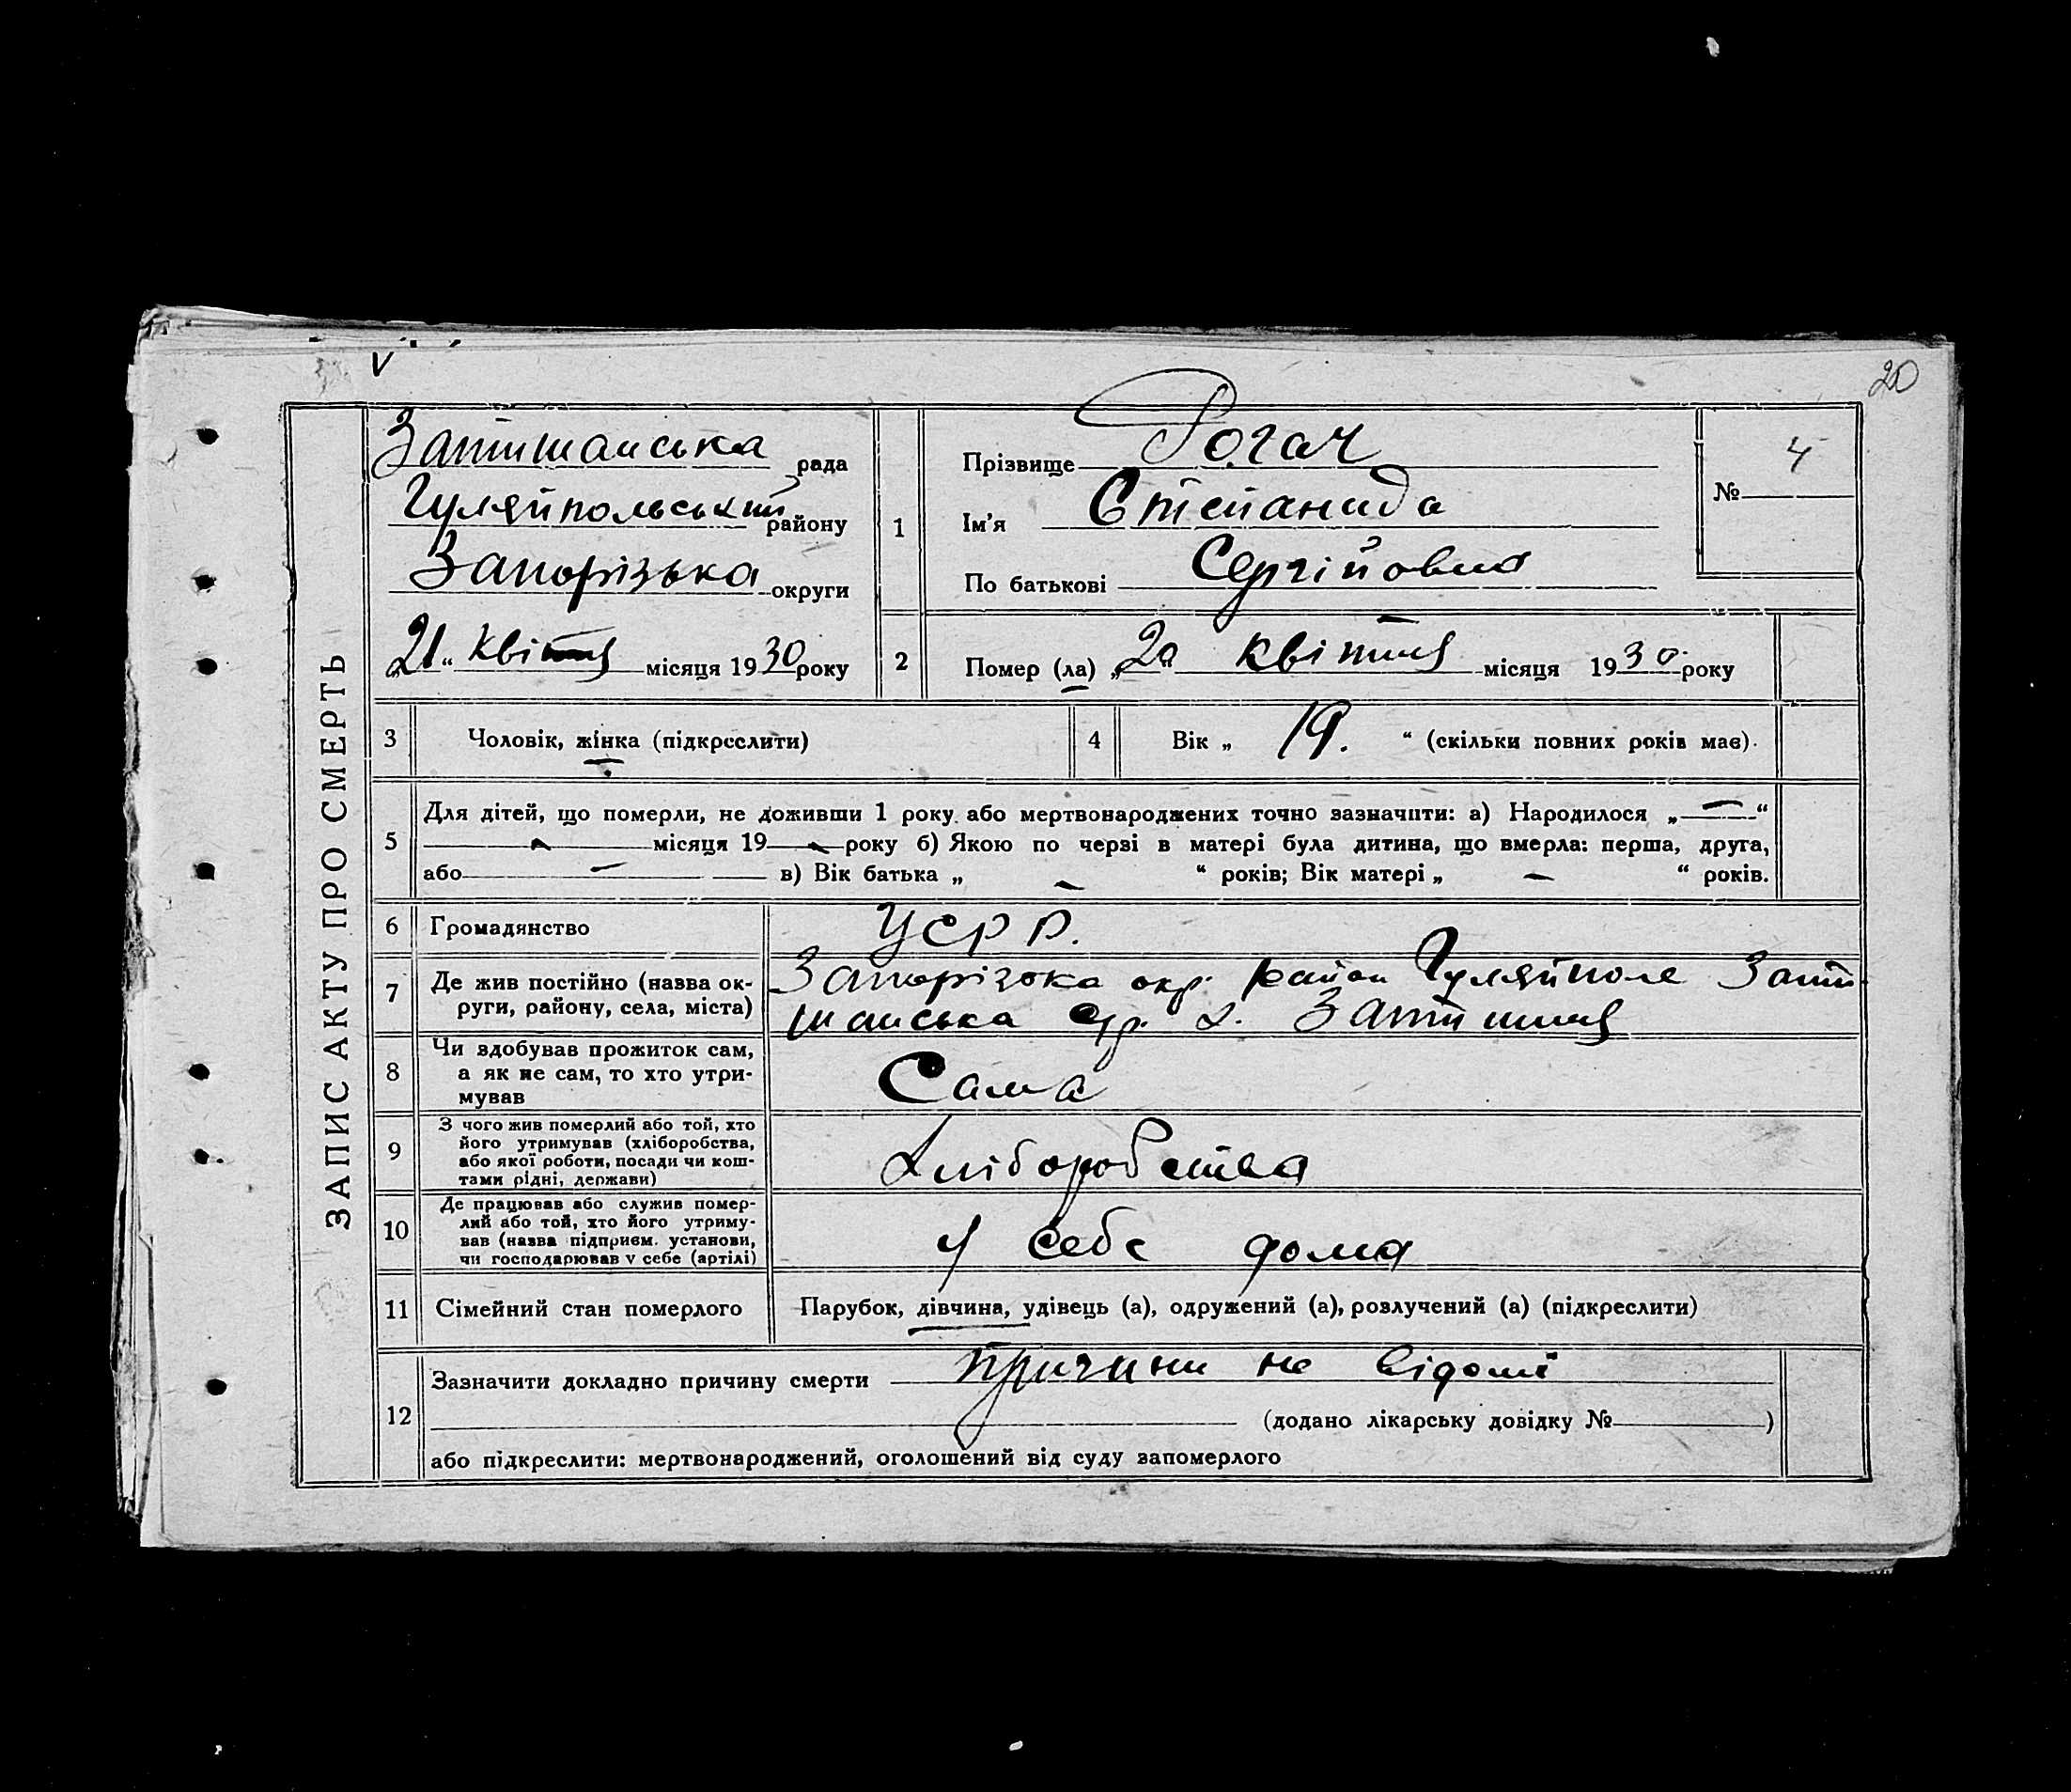 20
ЗАПИС АКТУ ПРО СМЕРТЬ
Затишанська рада
Гуляйпольський району
Запорізька округи
„21“ квітня місяця 1930 року
1
Прізвище Рогач
Ім'я Степанида
По батькові Сергійовна
№ 4
2
Помер (ла) „20“ квітня місяця 1930 року
3
Чоловік, жінка (підкреслити)
4
Вік „ 19. “ (скільки повних років має).
5
Для дітей, що померли, не доживши 1 року або мертвонароджених точно зазначити: а) Народилося „—“
— місяця 19— року б) Якою по черзі в матері була дитина, що вмерла: перша, друга,
або — в) Вік батька „ — “ років; Вік матері „ — “ років.
6
Громадянство
УСРР.
7
Де жив постійно (назва ок-
руги, району, села, міста)
Запорізька окр. район Гуляйполе Зати-
шанська с/р. х. Затишшя
8
Чи здобував прожиток сам,
а як не сам, то хто утри-
мував
Сама
9
З чого жив померлий або той, хто
його утримував (хліборобства,
або якої роботи, посади чи кош-
тами рідні, держави)
Хліборобства
10
Де працював або служив помер-
лий або той, хто його утриму-
вав (назва підприєм. установи,
чи господарював у себе (артілі)
У себе дома
11
Сімейний стан померлого
Парубок, дівчина, удівець (а), одружений (а), розлучений (а) (підкреслити)
12
Зазначити докладно причину смерти причини не відомі
(додано лікарську довідку № )
або підкреслити: мертвонароджений, оголошений від суду запомерлого